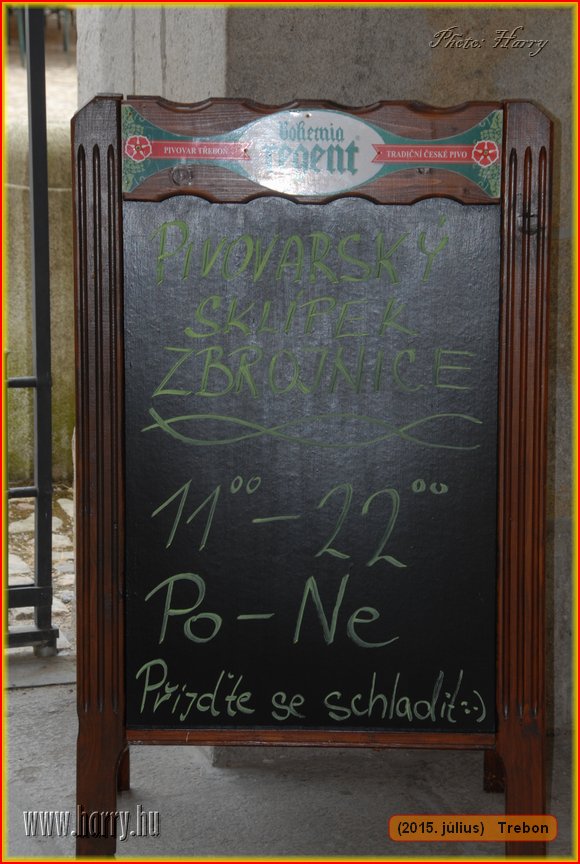 Photo: Harry
Bohemia
PIVOVAR TŘEBOŇ regent TRADIČNÍ ČESKÉ PIVO
PIVOVARSKÝ
SKLÍPEK
ZBROJNICE
11⁰⁰ - 22⁰⁰
Po - Ne
Přijďte se schladit :-)
www.harry.hu
(2015. július) Trebon